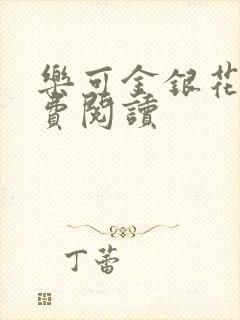 樂可金銀花
費閱讀
丁蕾